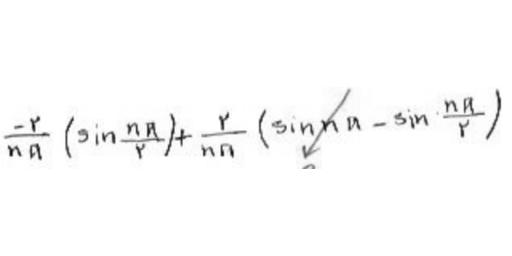 $\frac{-۲}{n\pi} \left(\sin \frac{n\pi}{۲}\right) + \frac{۲}{n\pi} \left(\sin n\pi - \sin \frac{n\pi}{۲}\right)$